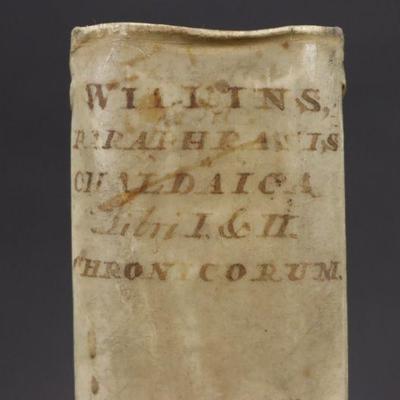 WILKINS,
PARAPHRASIS
CHALDAICA
Libri I. & II.
CHRONICORUM.